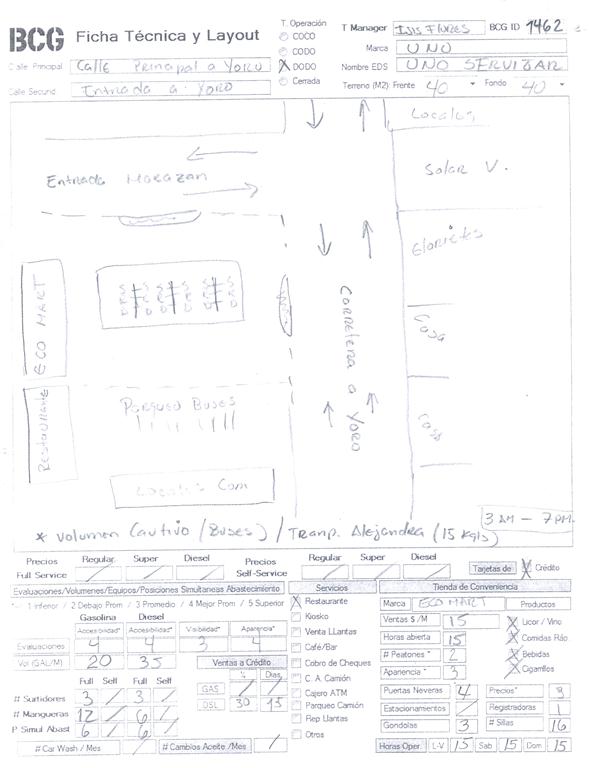 BCG Ficha Técnica y Layout
T. Operación
COCO
CODO
DODO
Cerrada
T Manager Isis Flores BCG ID 1462
Marca UNO
Nombre EDS UNO SERVIBAR
Terreno (M2): Frente 40 Fondo 40
Calle Principal Calle Principal a Yoro
Calle Secund Entrada a Yoro
Locales
Entrada Morazan
Solar V.
Glorietas
ECO MART
S R D
Carretera a Yoro
Casa
Restaurante
Parqueo Buses
Casa
Locales Com
3 AM - 7 PM.
* Volumen Cautivo (Buses) / Tranp. Alejandra (15 Kgls)
Precios Regular Super Diesel Precios Regular Super Diesel
Full Service Self-Service Tarjetas de X Crédito
Evaluaciones/Volumenes/Equipos/Posiciones Simultaneas Abastecimiento Servicios Tienda de Conveniencia
1 Inferior / 2 Debajo Prom / 3 Promedio / 4 Mejor Prom / 5 Superior
Gasolina Diesel
Accesibilidad* Accesibilidad* Visibilidad* Apariencia*
Evaluaciones 4 4 3 4
Vol (GAL/M) 20 35 Ventas a Crédito
Full Self Full Self % Días
GAS / /
DSL 30 15
# Surtidores 3 / 3 /
# Mangueras 12 / 6 /
P Simul Abast 6 / 6 /
# Car Wash / Mes # Cambios Aceite /Mes /
X Restaurante
Kiosko
Venta LLantas
Café/Bar
Cobro de Cheques
C. A. Camión
Cajero ATM
Parqueo Camión
Rep Llantas
Otros
Marca ECO MART Productos
Ventas $ /M 15 X Licor / Vino
Horas abierta 15 X Comidas Ráp
# Peatones * 2 X Bebidas
Apariencia * 3 X Cigarrillos
Puertas Neveras 4 Precios* 3
Estacionamientos / Registradoras 1
Gondolas 3 # Sillas 16
Horas Oper. L-V 15 Sab 15 Dom 15